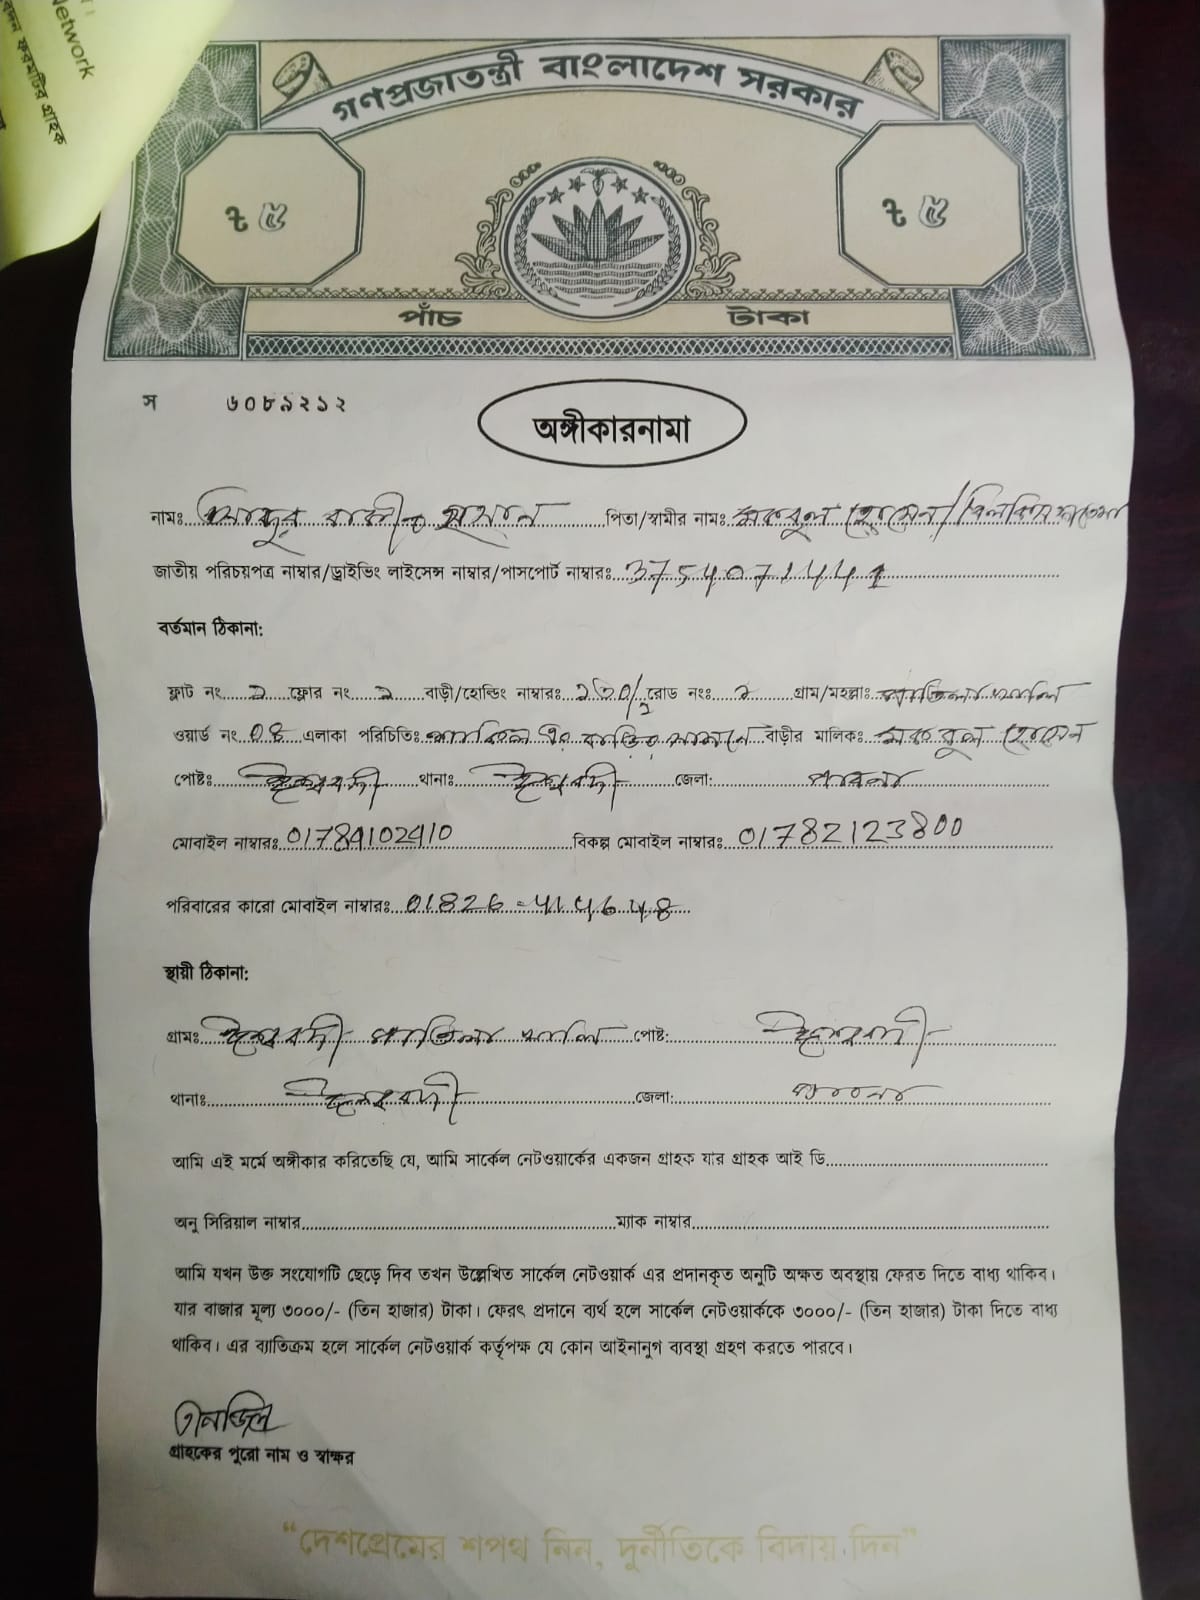 Network
বেদন ফরমটির গ্রাহক
গণপ্রজাতন্ত্রী বাংলাদেশ সরকার
ট ৫ ট ৫
পাঁচ টাকা
স ৬০৮৯২১২
অঙ্গীকারনামা
নামঃ হাসান পিতা/স্বামীর নামঃ মকবুল হোসেন/বিলকিস ফাতেমা
জাতীয় পরিচয়পত্র নাম্বার/ড্রাইভিং লাইসেন্স নাম্বার/পাসপোর্ট নাম্বারঃ 3754071441
বর্তমান ঠিকানা:
ফ্লাট নং ফ্লোর নং বাড়ী/হোল্ডিং নাম্বারঃ রোড নংঃ গ্রাম/মহল্লাঃ
ওয়ার্ড নং 08 এলাকা পরিচিতিঃ এর বাড়ির সামনে বাড়ীর মালিকঃ মকবুল হোসেন
পোষ্টঃ ঈশ্বরদী থানাঃ ঈশ্বরদী জেলা: পাবনা
মোবাইল নাম্বারঃ 01784102410 বিকল্প মোবাইল নাম্বারঃ 01782123800
পরিবারের কারো মোবাইল নাম্বারঃ 01826-414648
স্থায়ী ঠিকানা:
গ্রামঃ ঈশ্বরদী পোষ্ট: ঈশ্বরদী
থানাঃ ঈশ্বরদী জেলা: পাবনা
আমি এই মর্মে অঙ্গীকার করিতেছি যে, আমি সার্কেল নেটওয়ার্কের একজন গ্রাহক যার গ্রাহক আই ডি
অনু সিরিয়াল নাম্বার ম্যাক নাম্বার
আমি যখন উক্ত সংযোগটি ছেড়ে দিব তখন উল্লেখিত সার্কেল নেটওয়ার্ক এর প্রদানকৃত অনুটি অক্ষত অবস্থায় ফেরত দিতে বাধ্য থাকিব।
যার বাজার মূল্য ৩০০০/- (তিন হাজার) টাকা। ফেরৎ প্রদানে ব্যর্থ হলে সার্কেল নেটওয়ার্ককে ৩০০০/- (তিন হাজার) টাকা দিতে বাধ্য
থাকিব। এর ব্যাতিক্রম হলে সার্কেল নেটওয়ার্ক কর্তৃপক্ষ যে কোন আইনানুগ ব্যবস্থা গ্রহণ করতে পারবে।
তানজিল
গ্রাহকের পুরো নাম ও স্বাক্ষর
“দেশপ্রেমের শপথ নিন, দুর্নীতিকে বিদায় দিন”